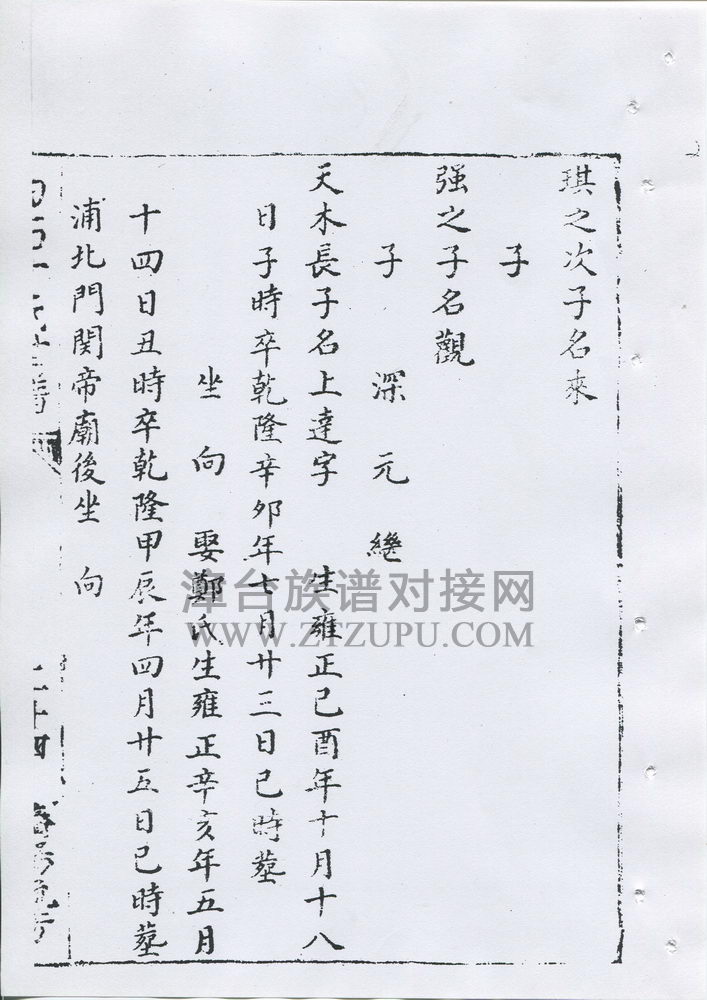 琪之次子名來
子
强之子名觀
子 深 元 繼
天木長子名上達字 生雍正己酉年十月十八
日子時卒乾隆辛卯年七月廿三日巳時塟
坐 向 娶鄭氏生雍正辛亥年五月
十四日丑時卒乾隆甲辰年四月廿五日巳時塟
浦北門関帝廟後坐 向
漳台族谱对接网
WWW.ZTZUPU.COM